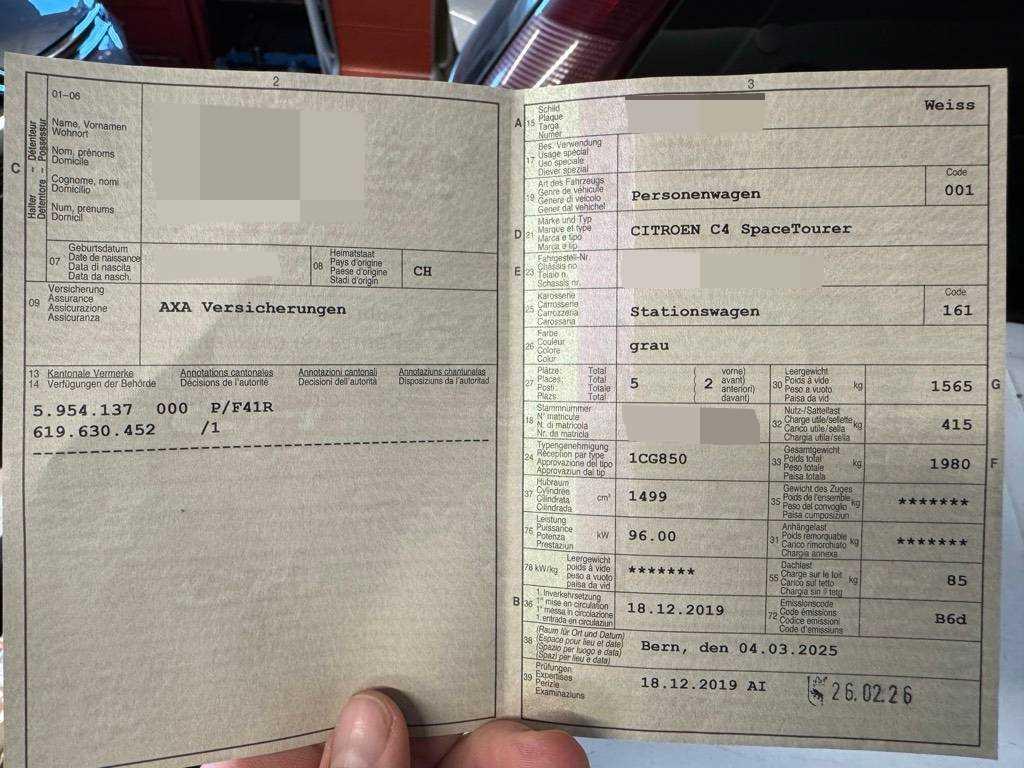 2
01–06
Halter – Détenteur
Detentore – Possessur
C
Name, Vornamen
Wohnort
Nom, prénoms
Domicile
Cognome, nomi
Domicilio
Num, prenums
Domicil
07
Geburtsdatum
Date de naissance
Data di nascita
Data da nasch.
08
Heimatstaat
Pays d'origine
Paese d'origine
Stadi d'origin
CH
09
Versicherung
Assurance
Assicurazione
Assicuranza
AXA Versicherungen
13 Kantonale Vermerke Annotations cantonales Annotazioni cantonali Annotaziuns chantunalas
14 Verfügungen der Behörde Décisions de l'autorité Decisioni dell'autorità Disposiziuns da l'autoritad
5.954.137 000 P/F41R
619.630.452 /1
3
A 15
Schild
Plaque
Targa
Numer
Weiss
17
Bes. Verwendung
Usage spécial
Uso speciale
Diever spezial
19
Art des Fahrzeugs
Genre de véhicule
Genere di veicolo
Gener dal vehichel
Personenwagen
Code
001
D 21
Marke und Typ
Marque et type
Marca e tipo
Marca e tip
CITROEN C4 SpaceTourer
E 23
Fahrgestell-Nr.
Châssis no
Telaio n.
Schassis nr.
25
Karosserie
Carrosserie
Carrozzeria
Carossaria
Stationswagen
Code
161
26
Farbe
Couleur
Colore
Colur
grau
27
Plätze: Total
Places: Total
Posti: Totale
Plazs: Total
5
2
vorne)
avant)
anteriori)
davant)
30
Leergewicht
Poids à vide
Peso a vuoto
Paisa da vid
kg
1565
G
18
Stammnummer
N° matricule
N. di matricola
Nr. da matricla
32
Nutz-/Sattellast
Charge utile/sellette
Carico utile/sella
Chargia utila/sella
kg
415
24
Typengenehmigung
Réception par type
Approvazione del tipo
Approvaziun dal tip
1CG850
33
Gesamtgewicht
Poids total
Peso totale
Paisa totala
kg
1980
F
37
Hubraum
Cylindrée
Cilindrata
Cilindrada
cm³
1499
35
Gewicht des Zuges
Poids de l'ensemble
Peso del convoglio
Paisa cumposiziun
kg
*******
76
Leistung
Puissance
Potenza
Prestaziun
kW
96.00
31
Anhängelast
Poids remorquable
Carico rimorchiato
Chargia annexa
kg
*******
78 kW/kg
Leergewicht
poids à vide
peso a vuoto
paisa da vid
*******
55
Dachlast
Charge sur le toit
Carico sul tetto
Chargia sin il tetg
kg
85
B 36
1. Inverkehrsetzung
1re mise en circulation
1a messa in circolazione
1. entrada en circulaziun
18.12.2019
72
Emissionscode
Code émissions
Codice emissioni
Code d'emissiuns
B6d
38
(Raum für Ort und Datum)
(Espace pour lieu et date)
(Spazio per luogo e data)
(Spazi per lieu e data)
Bern, den 04.03.2025
39
Prüfungen
Expertises
Perizie
Examinaziuns
18.12.2019 AI
26.02.26